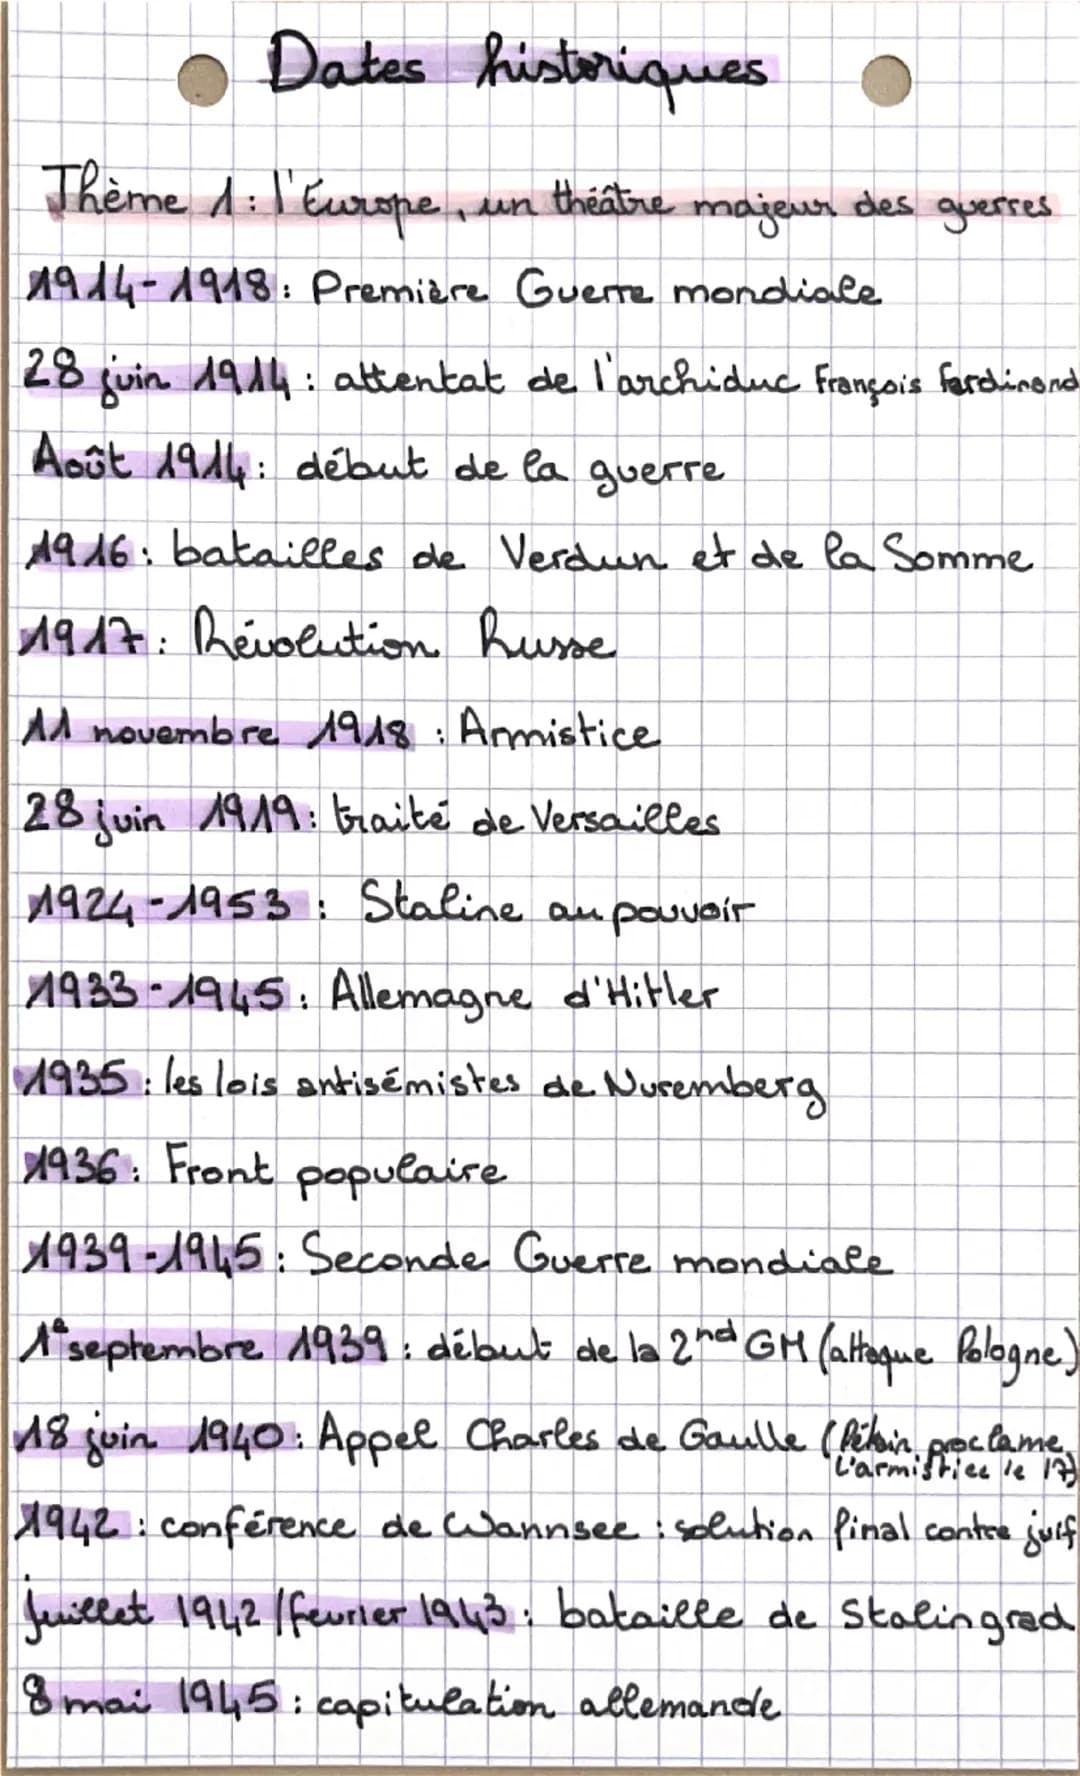 Dates historiques
Thème 1: l'Europe, un théâtre majeur des guerres
1914-1918: Première Guerre mondiale
28 juin 1914: attentat de l'archiduc François Ferdinand
Août 1914: début de la guerre
1916: batailles de Verdun et de la Somme
1917: Révolution Russe
11 novembre 1918: Armistice
28 juin 1919: traité de Versailles
1924-1953: Staline au pouvoir
1933-1945: Allemagne d'Hitler
1935: les lois antisémistes de Nuremberg
1936: Front populaire
1939-1945: Seconde Guerre mondiale
1e septembre 1939: début de la 2nd GM (attaque Pologne)
18 juin 1940: Appel Charles de Gaulle (Pétain proclame
l'armistice le 17)
1942: conférence de Wannsee: solution final contre juif
juillet 1942/fevrier 1943: bataille de Stalingrad
8 mai 1945: capitulation allemande